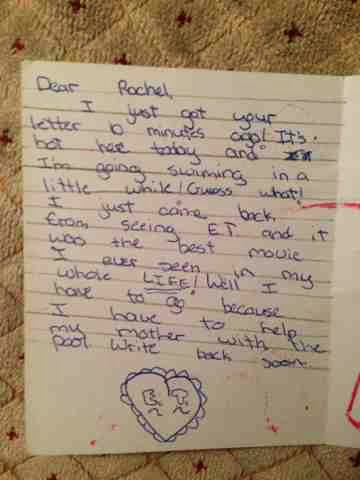 Dear Rachel,
I just got your
letter 10 minutes ago! It's
hot here today and
I'm going swiming in a
little while! Guess what!
I just came back
from seeing E.T. and it
was the best movie
I ever seen in my
whole LIFE! Well I
have to go because
I have to help
my mother with the
pool. Write back soon.